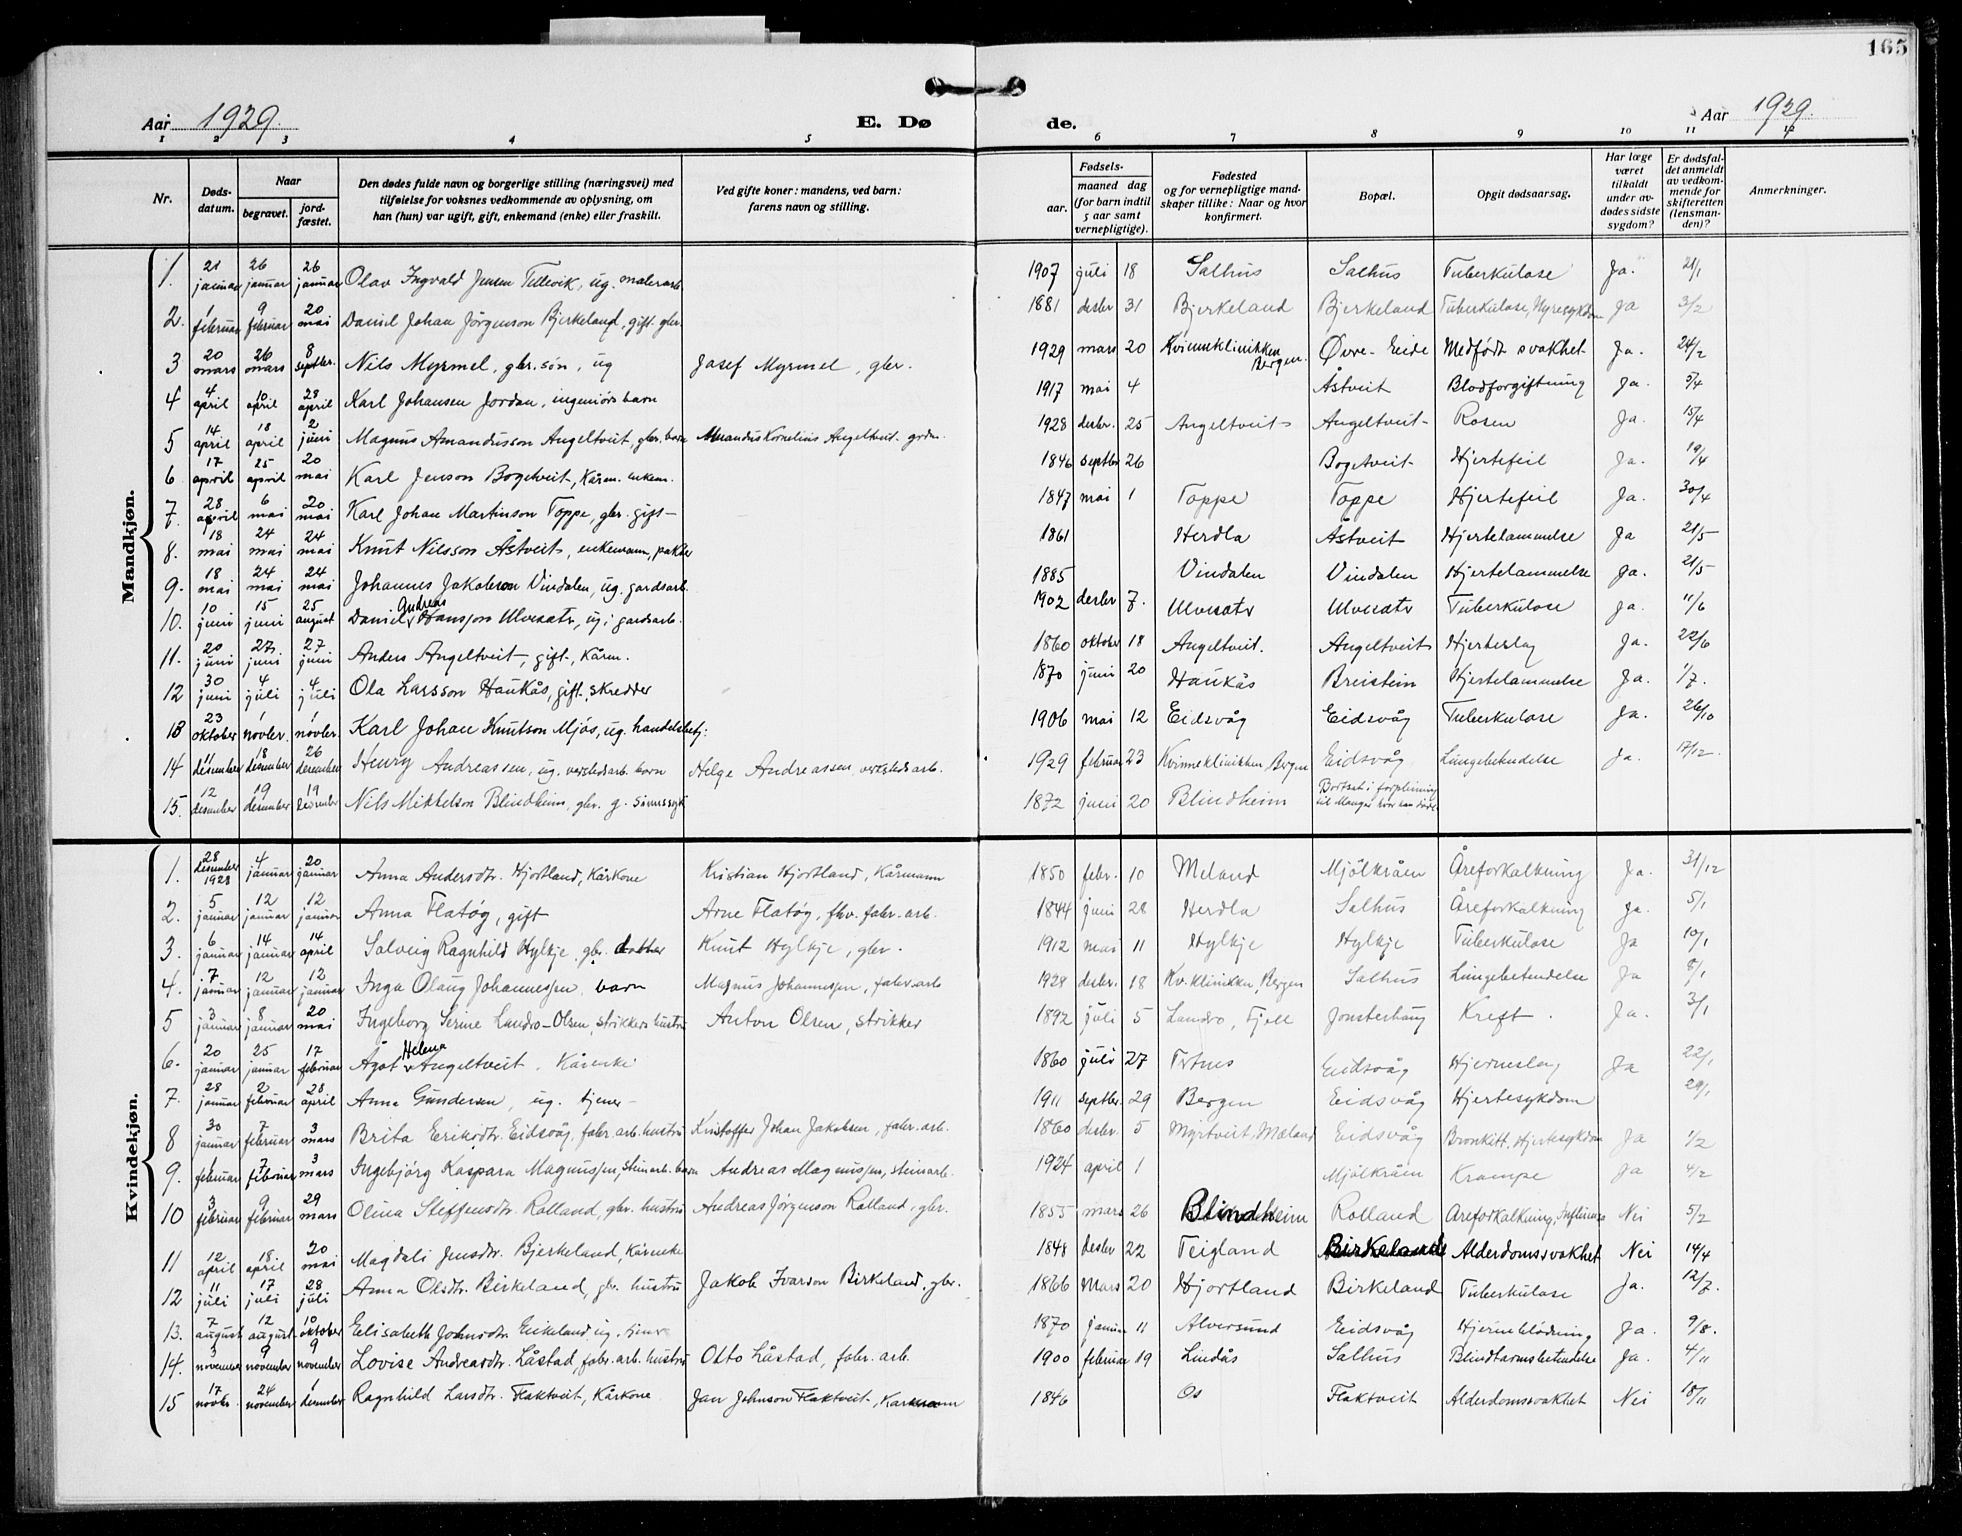 165
Aar 1929.
E. Dø
de.
Aar 1929.
1 2 3 4 5 6 7 8 9 10 11 12
Nr.
Døds-
datum.
Naar
begravet.
jord-
fæstet.
Den dødes fulde navn og borgerlige stilling (næringsvei) med
tilføielse for voksnes vedkommende av oplysning, om
han (hun) var ugift, gift, enkemand (enke) eller fraskilt.
Ved gifte koner: mandens, ved barn:
farens navn og stilling.
Fødsels-
aar.
maaned dag
(for barn indtil
5 aar samt
vernepligtige).
Fødested
og for vernepligtige mand-
skaper tillike: Naar og hvor
konfirmert.
Bopæl.
Opgit dødsaarsag.
Har læge
været
tilkaldt
under av-
dødes sidste
sygdom?
Er dødsfal-
det anmeldt
av vedkom-
mende for
skifteretten
(lensman-
den)?
Anmerkninger.
Mandkjøn.
1. 21 januar 26 januar 26 januar Olav Ingvald Jensen Tellevik, ug. malerarb. 1907 juli 18 Salhus Salhus Tuberkulose Ja. 21/1
2. 1 februar 9 februar 20 mai Daniel Johan Jörgenson Bjerkeland, gift. gbr. 1881 desbr 31 Bjerkeland Bjerkeland Tuberkulose, Nyresykdom Ja 3/2
3 20 mars 26 mars 8 septbr. Nils Myrmel, gbr. søn, ug Josef Myrmel, gbr. 1929 mars 20 Kvinneklinikken Bergen. Øvre-Eide Medfödt svakhet Ja. 24/2
4 4 april 10 april 28 april Karl Johansen Jordan, ingeniörs barn 1917 mai 4 Åstveit Blodforgiftning Ja. 5/4
5 14 april 18 april 2 juni Magnus Amandusson Angeltveit, gbr. barn Amandus Kornelius Angeltveit. grdm. 1928 desbr. 25 Angeltveit Angeltveit Rosen Ja. 15/4
6. 17 april 25 april 20 mai Karl Jenson Bogetveit, Kårm. enkem. 1846 septbr 26 Bogetveit Hjertefeil Ja. 19/4
7. 28 april 6 mai 20 mai Karl Johan Martinson Toppe, gbr. gift 1847 mai 1 Toppe Toppe Hjertefeil Ja. 30/4
8. 18 mai 24 mai 24 mai Knut Nilsson Åstveit, enkemann, pakter 1861 Herdla Åstveit Hjertelammelse Ja 21/5
9. 18 mai 24 mai 24 mai Johannes Jakobson Vindalen, ug. gardsarb. 1885 Vindalen Vindalen Hjertelammelse Ja. 21/5
10. 10 juni 15 juni 25 august Daniel Andreas Hansson Ulvesætr, ug. gardsarb. 1902 desbr 7. Ulvesætr Ulvesætr Tuberkulose Ja. 11/6
11. 20 juni 27 juni 27 juni Anders Angeltveit, gift, Kårm. 1860 oktober 18 Angeltveit. Angeltveit Hjerteslag Ja. 22/6
12 30 juni 4 juli 4 juli Ola Larsson Haukås, gift, skredder 1870 juni 20 Haukås Breistein Hjertelammelse Ja. 1/7.
13 23 oktober 1 novbr. 1 novbr. Karl Johan Knutson Mjös, ug. handelsbetj: 1906 mai 12 Eidsvåg Eidsvåg Tuberkulose Ja. 26/10
14 11 desember 18 desember 26 desember Henry Andreassen, ug. verkstedsarb. barn Helge Andreassen, verkstedsarb. 1929 februar 23 Kvinneklinikken, Bergen Eidsvåg Lungebetendelse Ja. 17/12.
15. 12 desember 19 desember 19 desember Nils Mikkelson Blindheim, gbr. g. sinnssyk 1872 juni 20 Blindheim Bortsat i forpleining til Manger hvor han döde
Kvindekjøn.
1. 28 desember 1928 4 januar 20 januar Anna Andersdtr. Hjortland, Kårkone Kristian Hjortland, Kårmann 1850 febr. 10 Meland Mjölkråen Åreforkalkning Ja. 31/12
2. 5 januar 12 januar 12 januar Anna Flatøg, gift Arne Flatøg, fhv. fabr. arb. 1844 juni 28 Herdla Salhus Åreforkalkning Ja. 5/1
3. 6 januar 14 januar 14 april Solveig Ragnhild Hylkje, gbr. datter Knut Hylkje, gbr. 1912 mai 11 Hylkje Hylkje Tuberkulose Ja 10/1
4. 7 januar 12 januar 12 januar Inga Olaug Johannessen, barn Magnus Johannessen, fabr. arb 1928 desbr. 18 Kv. klinikken, Bergen Salhus Lungebetendelse Ja 8/1
5 3 januar 8 januar 20 mai Ingeborg Serine Landro-Olsen, strikkers hustru Anton Olsen, strikker 1892 juli 5 Landro, Fjell Jonsterhaug Kreft. Ja. 3/1
6. 20 januar 25 januar 17 februar Ågot Helena Angeltveit, Kårenke 1860 juli 27 Tertnes Eidsvåg Hjerneslag Ja 22/1
7. 28 januar 2 februar 28 april Anna Gundersen, ug. tjener 1911 septbr. 29 Bergen Eidsvåg Hjertesykdom 29/1
8 30 januar 7 februar 3 mars Brita Eriksdtr. Eidsvåg, fabr. arb. hustru Kristoffer Johan Jakobsen, fabr. arb. 1860 desbr. 5 Myrtveit, Mæland Eidsvåg Bronkitt, Hjertesykdom Ja 1/2
9. februar 7 februar 3 mars Ingebjörg Kaspara Magnussen, steinarb. barn Andreas Magnussen, steinarb. 1924 april 1 Mjölkråen Krampe Ja 4/2
10 3 februar 9 februar 29 mars Olina Steffensdtr. Rolland, gbr. hustru Andreas Jörgenson Rolland, gbr. 1855 mars 26 Blindheim Rolland Åreforkalkning, Influensa Nei 5/2
11 12 april 18 april 20 mai Magdali Jensdtr. Bjerkeland, Kårenke 1848 desbr 22 Teigland Birkeland Alderdomssvakhet Nei 14/4
12 11 juli 17 juli 28 juli Anna Olsdtr. Birkeland, gbr. hustru Jakob Ivarson Birkeland, gbr. 1866 Mars 20 Hjortland Birkeland Tuberkulose Ja. 12/7.
13. 7 august 12 august 10 oktober Elisabeth Johnsdtr. Eikeland, ug. tjener 1870 januar 11 Alversund Eidsvåg Hjerneblödning Ja. 9/8.
14. 3 november 9 november 9 november Lovise Andreasdtr. Låstad, fabr. arb. hustru Otto Låstad, fabr. arb. 1900 februar 19 Lindås Salhus Blindtarmsbetendelse Ja. 4/11
15 17 novbr. 24 november 1 desember Ragnhild Larsdtr. Flaktveit, Kårkone Jan Johnson Flaktveit, Karmann 1846 Os Flaktveit Alderdomssvakhet Nei 18/11